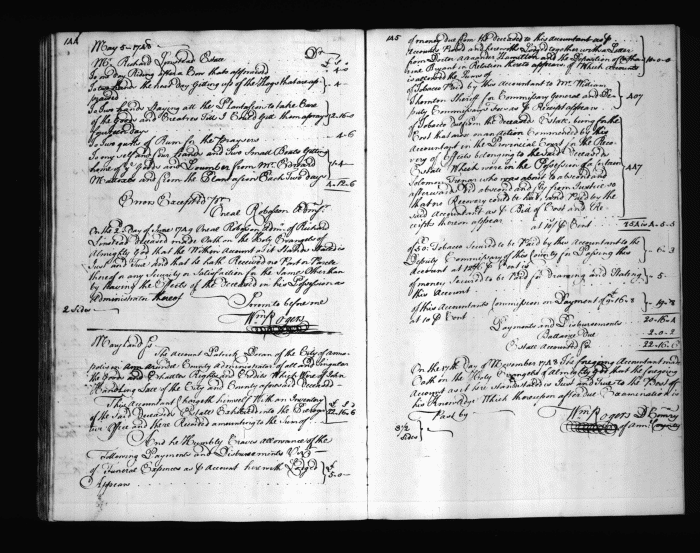 144
May 5 - 1748
Mr. Richard Limstead Estate Dr
£ s
To one day Riding after a Cow that's appraised - 4-0
To two hands the head Day Getting up of the Hogs that are ap
praised - 4 -
To Two hands Staying all the Plantation to take Care
of the Goods and Creatures Till I Could Gett them away
fourteen days 2-16-0
To two quarts of Rum for the Praysers 4-6
To my self and four hands and Two Small Boats Getting
home of Goods and Lumber from Mr. Richard
and from the Plantation Each Two days 1-4-
4-12-6
Errors Excepted pr
Great Robason Admr.
On the 2d Day of June 1749 Great Robason Admr. of Richard
Limstead deceased made Oath on the Holy Evangels of
Almighty God that the Within Account as it stands Stated is
Just and True and that he hath Received no Part or Parcle
thereof or any Security or Satisfaction for the Same Other than
by having the Effects of the Deceased in his Possession as
Administrator thereof
Sworn to before me
2 Sides
Wm Rogers
Maryland Ss.
The Account Patrick Doran of the City of anna
polis in ann arundel County Administrator of all and Singular
the Goods and Chattles Rights and Credits Which Were of John
Hambling Late of the City and County aforesaid Deceased -
This Accountant Chargeth himself With an Inventory
of the Said Deceaseds Estate Exhibited into the Prerog
ive Office and there Recorded amounting to the Sum of £ 22-16-6
And he Humbly Craves allowance of the
Following Payments and Disbursements Viz.
of Funeral Expences as p Account herewith Lodged
Appears 5-0-
145
of money due from the deceased to this accountant as p
account Proved and herewith Lodged together with a Letter
from Doctor Alexander Hamilton and the Deposition of
Bryant in Relation thereto appears of Which account
is allowed the Sum of 10-0-0
of Tobacco Paid by this Accountant to Mr. William
Thornton Sheriff for Commissary General and De
puty Commissarys Fees as p Receipt appears 407
of Tobacco due from the deceaseds Estate being for the
Cost that arose on an action Commenced by this
Accountant in the Provincial Court for the Reco
very of Effects belonging to the Said Deceaseds
Estate Which were in the Possession of a Certain
Solomon who was about to abscond and
afterwards did abscond and fly from Justice so
that no Recovery could be had, Paid by the
Said Accountant as p Bill of Cost and Re
ceipts thereon appear 447
at 10/ p Cent 4-5-5
of Tobacco Seemed to be Paid by this Accountant to the
Deputy Commissary of this County for Passing this
Account at p Cent 6-3
of money Seemed to be Paid for Drawing and Stating
this Account - 5 -
of this Accountants Commission on Payment of 16-8
at 10 p Cent
Payments and Disbursements 20-16-4
Ballance due 2-0-2
Estate accounted for 22-16-6
On the 17th Day of November 1748 The foregoing Accountant made
Oath on the Holy Evangels of almighty God that the foregoing
Account as it stands stated is Just and True to the Best of
his Knowledge Which thereupon after due Examination is
Past by -
Wm Rogers D Comry
of ann County
3 1/2
Sides